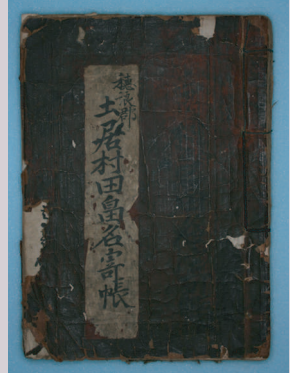 穂波郡
土居村田畠名寄帳